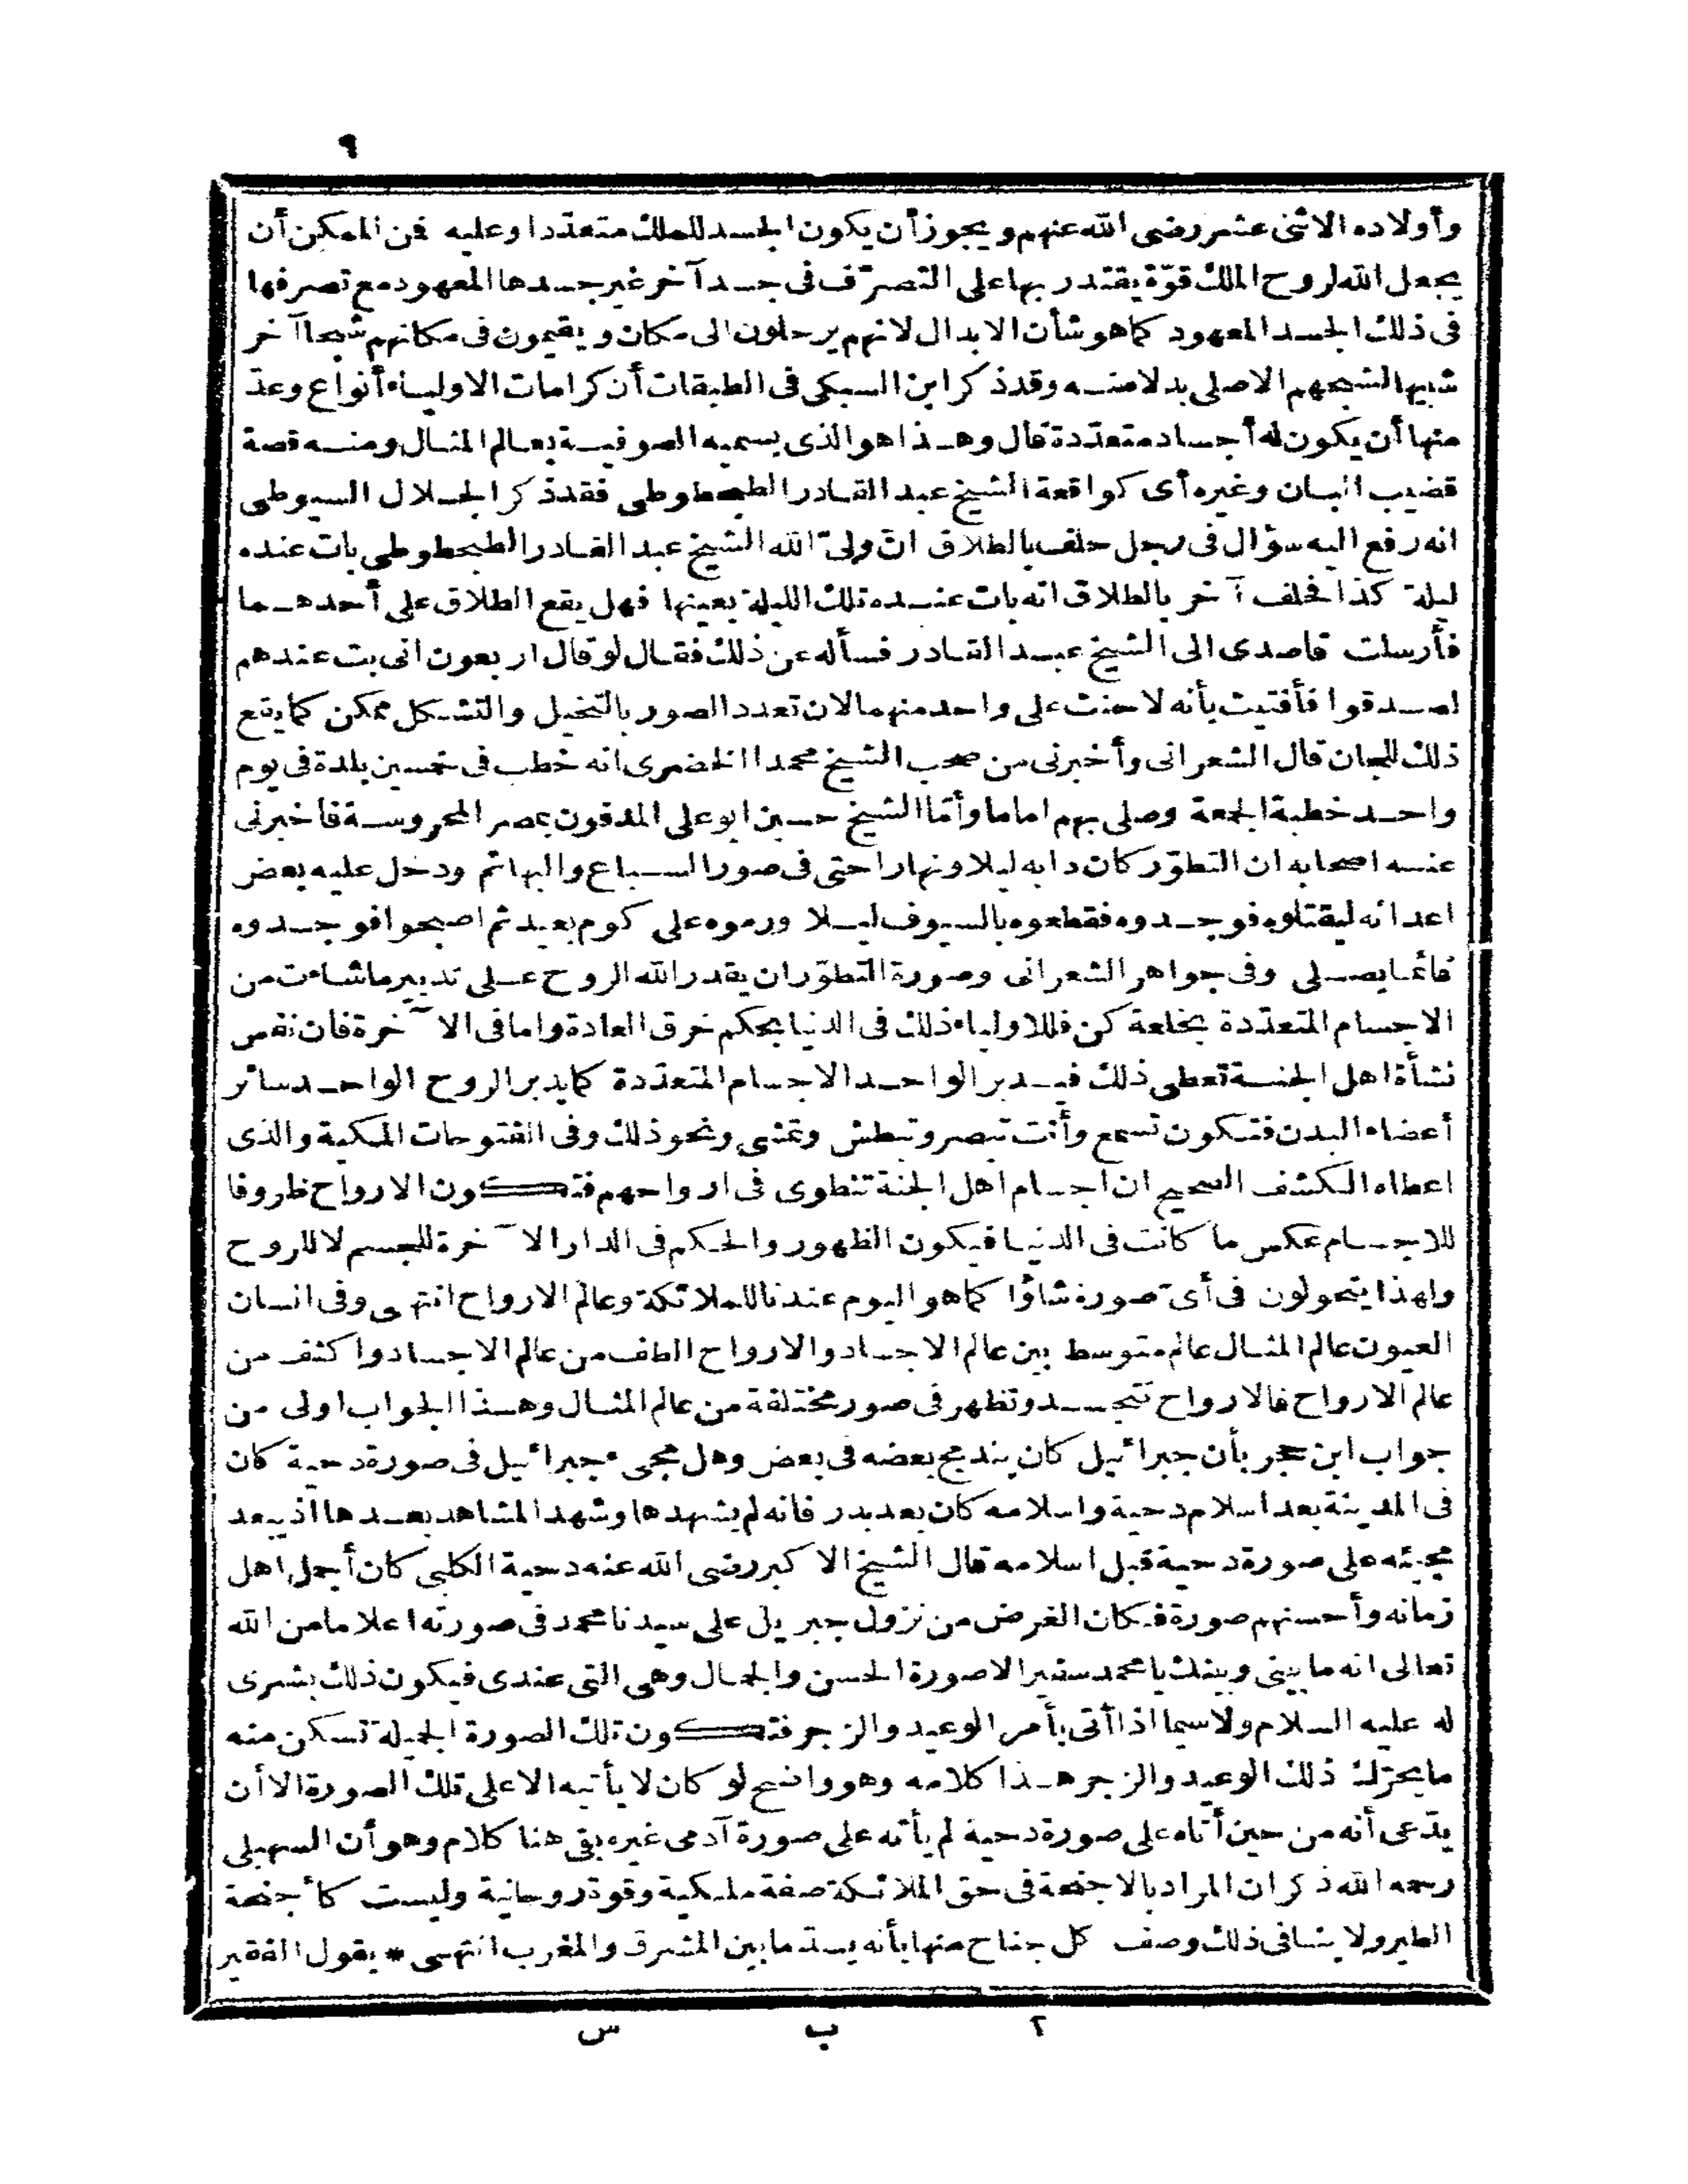 ٩
وأولاده الاثنى عشر رضى الله عنهم ويجوز أن يكون الجسد للملك متعدّدا وعليه فمن الممكن أن
يجعل الله لروح الملك قوّة يقتدر بها على التصرّف فى جسد آخر غير جسدها المعهود مع تصرفها
فى ذلك الجسد المعهود كما هو شأن الابدال لانهم يرحلون الى مكان ويقيمون فى مكانهم شبحا آخر
شبيها لشبحهم الاصلى بدلا منه وقد ذكر ابن السبكى فى الطبقات أن كرامات الاولياء أنواع وعدّ
منها أن يكون له أجساد متعدّدة قال وهذا هو الذى يسميه الصوفية بعالم المثال ومنه قصة
قضيب البان وغيره أى كواقعة الشيخ عبد القادر الطحطوطى فقد ذكر الجلال السيوطى
انه رفع اليه سؤال فى رجل حلف بالطلاق انّ ولىّ الله الشيخ عبد القادر الطبحطوطى بات عنده
ليلة كذا فحلف آخر بالطلاق انه بات عنده تلك الليلة بعينها فهل يقع الطلاق على أحدهما
فأرسلت قاصدى الى الشيخ عبد القادر فسأله عن ذلك فقال لو قال اربعون انى بت عندهم
لصدقوا فأفتيت بأنه لا حنث على واحد منهما لان تعدد الصور بالتخيل والتشكل ممكن كما يقع
ذلك للجان قال الشعرانى وأخبرنى من صحب الشيخ محمدا الخضرى انه خطب فى خمسين بلدة فى يوم
واحد خطبة الجمعة وصلى بهم اماما وأمّا الشيخ حسين ابو على المدفون بمصر المحروسة فاخبرنى
عنه اصحابه ان التطوّر كان دابه ليلا ونهارا حتى فى صور السباع والبهائم ودخل عليه بعض
اعدائه ليقتلوه فوجدوه فقطعوه بالسيوف ليلا ورموه على كوم بعيد ثم اصبحوا فوجدوه
قائما يصلى وفى جواهر الشعرانى وصورة التطوّر ان يقدر الله الروح على تدبير ما شاءت من
الاجسام المتعدّدة بخلعة كن فللاولياء ذلك فى الدنيا بحكم خرق العادة واما فى الآخرة فان نفس
نشأة اهل الجنة تعطى ذلك فيدبر الواحد الاجسام المتعدّدة كما يدبر الروح الواحد سائر
أعضاء البدن فتكون تسمع وأنت تبصر وتبطش وتمشى ونحو ذلك وفى الفتوحات المكية والذى
اعطاه الكشف الصحيح ان اجسام اهل الجنة تنطوى فى ارواحهم فتكون الارواح ظروفا
للاجسام عكس ما كانت فى الدنيا فيكون الظهور والحكم فى الدار الآخرة للجسم لا للروح
ولهذا يتحولون فى أىّ صورة شاؤا كما هو اليوم عندنا للملائكة وعالم الارواح انتهى وفى انسان
العيون عالم المثال عالم متوسط بين عالم الاجساد والارواح الطف من عالم الاجساد واكثف من
عالم الارواح فالارواح تتجسد وتظهر فى صور مختلفة من عالم المثال وهذا الجواب اولى من
جواب ابن حجر بأن جبرائيل كان يندمج بعضه فى بعض وهل مجىء جبرائيل فى صورة دحية كان
فى المدينة بعد اسلام دحية واسلامه كان بعد بدر فانه لم يشهدها وشهد المشاهد بعدها اذ يبعد
مجيئه على صورة دحية قبل اسلامه قال الشيخ الاكبر رضى الله عنه دحية الكلبى كان أجمل اهل
زمانه وأحسنهم صورة فكان الغرض من نزول جبريل على سيدنا محمد فى صورته اعلاما من الله
تعالى انه ما بينى وبينك يا محمد سفير الا صورة الحسن والجمال وهى التى عندى فيكون ذلك بشرى
له عليه السلام ولا سيما اذا أتى بأمر الوعيد والزجر فتكون تلك الصورة الجميلة تسكن منه
ما يحرّك ذلك الوعيد والزجر هذا كلامه وهو واضح لو كان لا يأتيه الا على تلك الصورة الا أن
يدّعى أنه من حين أتاه على صورة دحية لم يأته على صورة آدمى غيره بقى هنا كلام وهو أن السهيلى
رحمه الله ذكر ان المراد بالاجنحة فى حق الملائكة صفة ملكية وقوة روحانية وليست كأجنحة
الطير ولا ينافى ذلك وصف كل جناح منها بأنه يسدّ ما بين المشرق والمغرب انتهى * يقول الفقير
٢ ب س